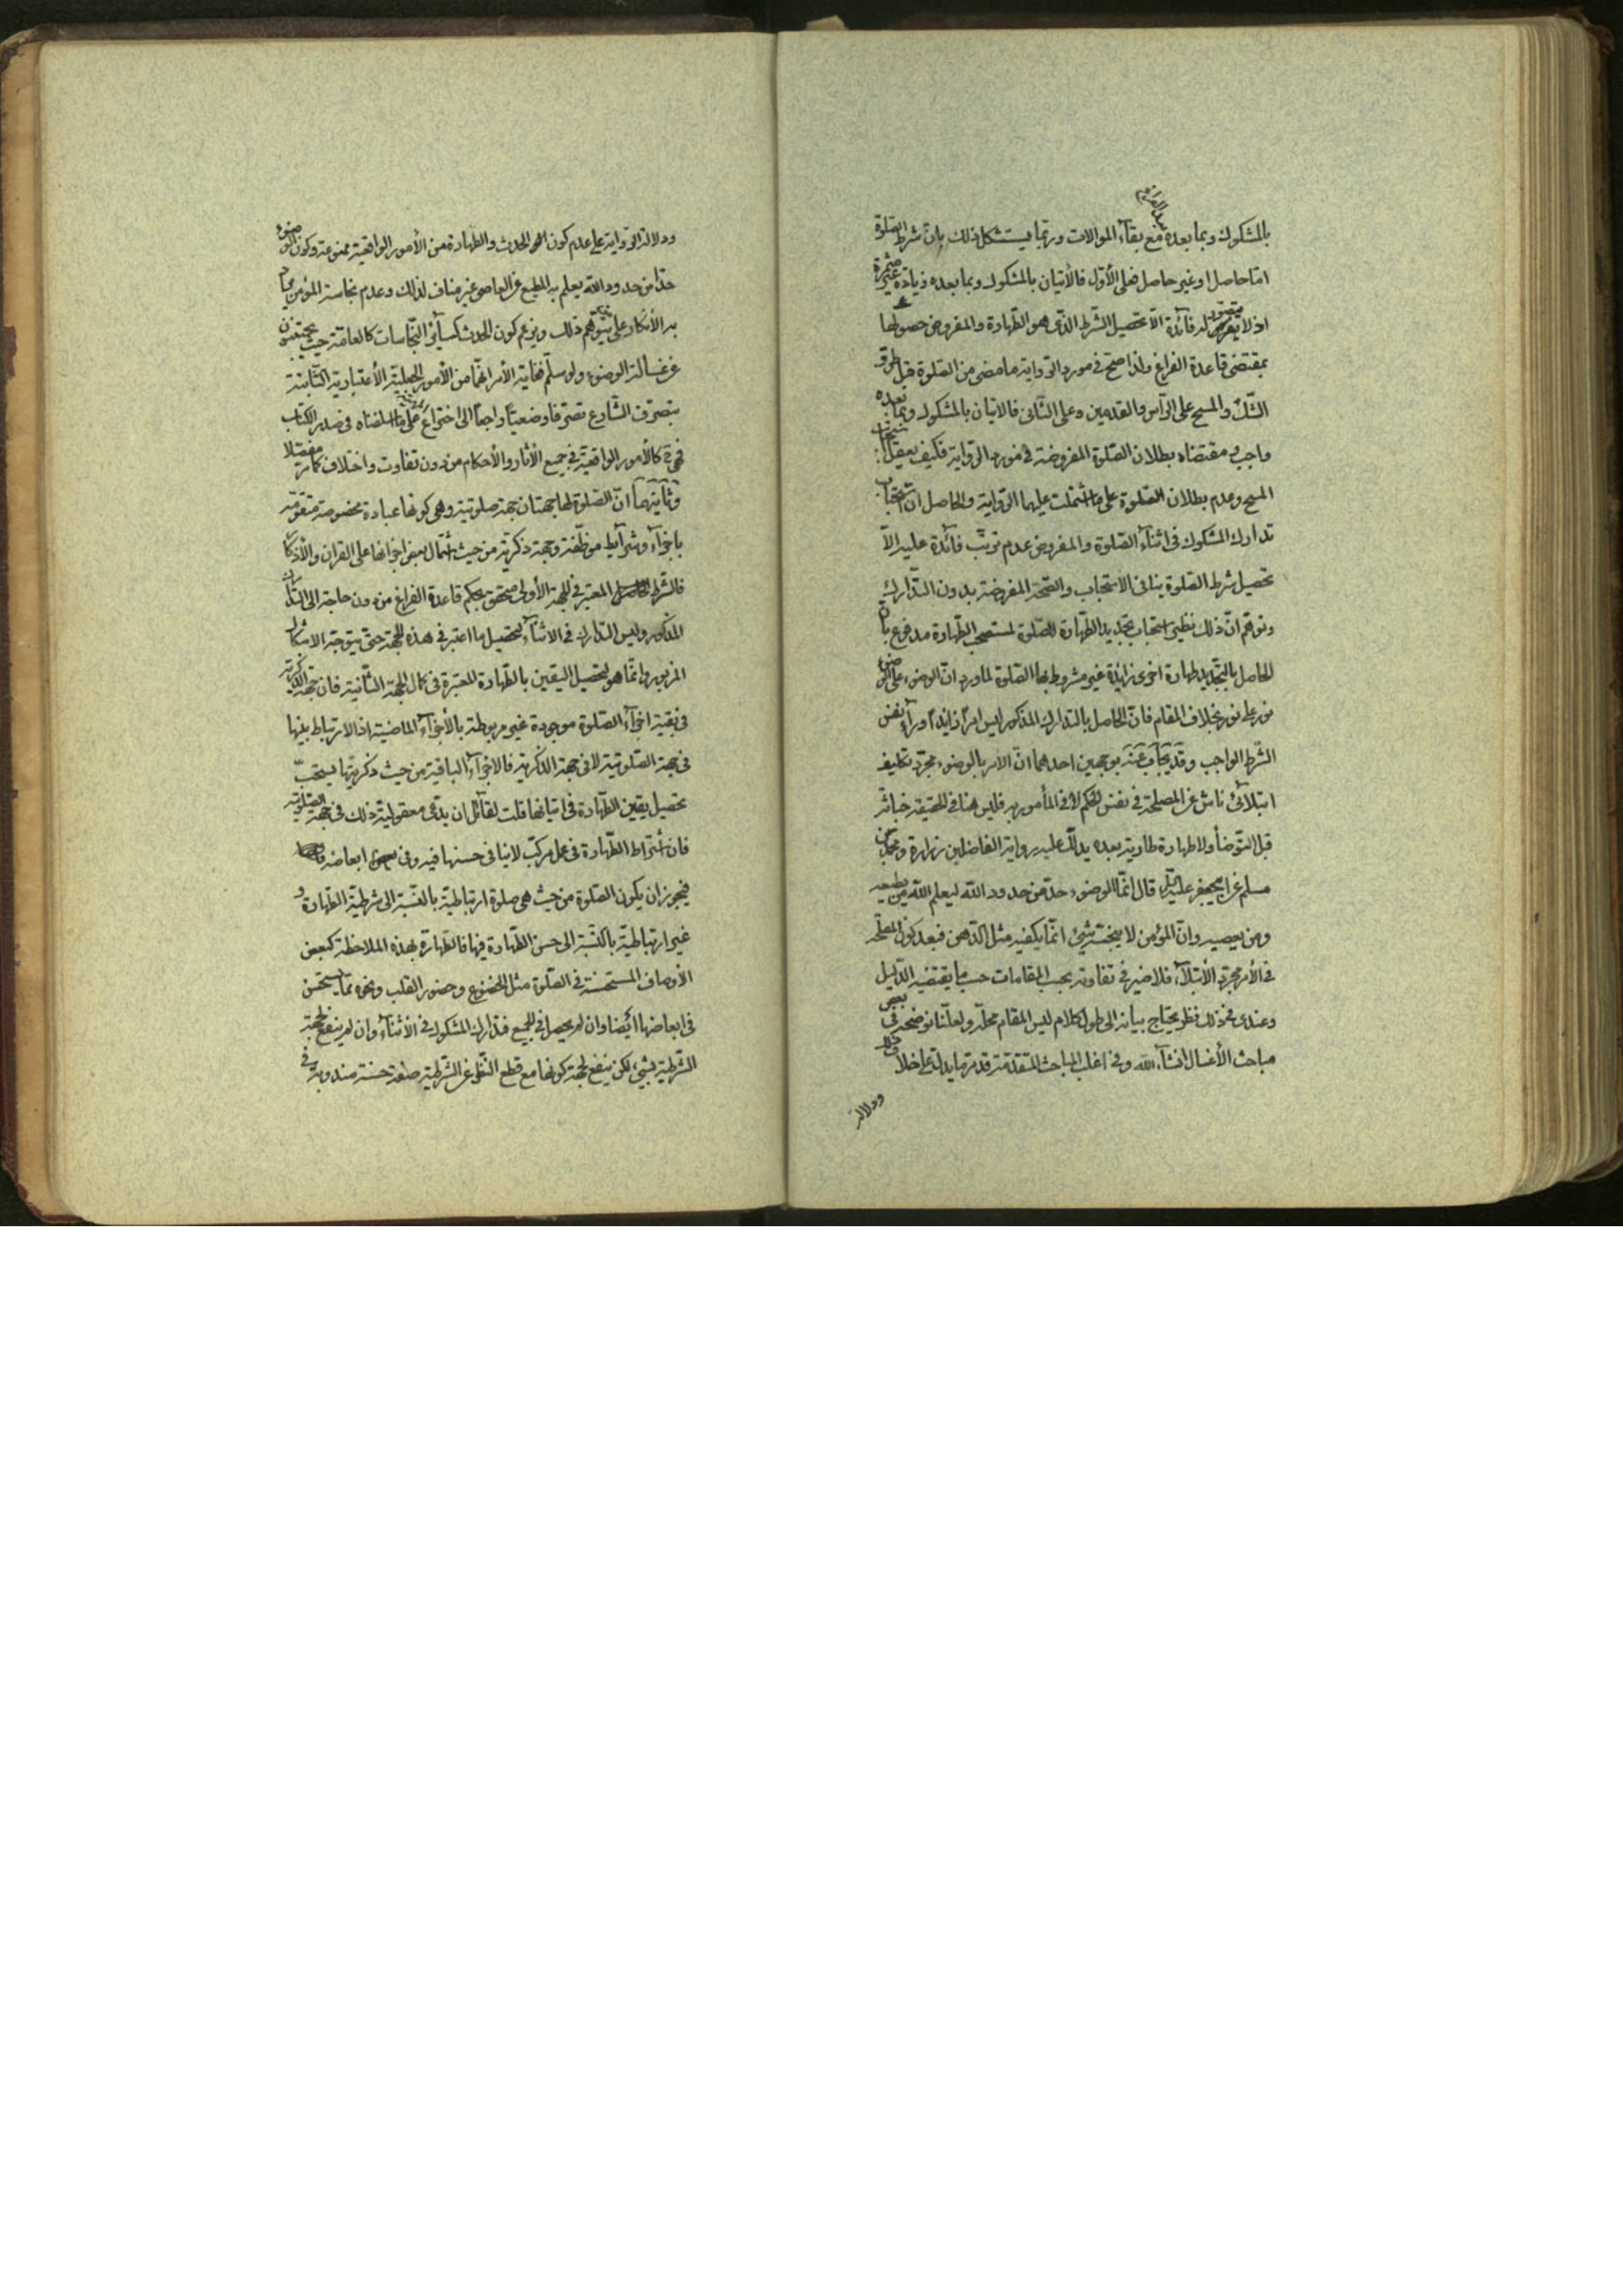 بالمشكوك وبما بعده مع بقاء الموالات وربما يستشكل ذلك بان شرط الصلوة
اما حاصل او غير حاصل فعلى الأول فالأتيان بالمشكوك وبما بعده زيادة غير مثمرة
اذ لا يتصور له فائدة الا تحصيل الشرط الذى هو الطهارة والمفروض حصولها
بمقتضى قاعدة الفراغ ولذا صح فى مورد الرواية ما مضى من الصلوة قبل طرو
الشك والمسح على الرأس والقدمين وعلى الثانى فالاتيان بالمشكوك وبما بعده
واجب ومقتضاه بطلان الصلوة المفروضة فى مورد الرواية فكيف يعقل استحباب
المسح وعدم بطلان الصلوة على ما اشتملت عليهما الرواية والحاصل ان استحباب
تدارك المشكوك فى اثناء الصلوة والمفروض عدم ترتب فائدة عليه الا
تحصيل شرط الصلوة ينافى الاستحباب والصحة المفروضة بدون التدارك
وتوهم ان ذلك نظير استحباب تجديد الطهارة للصلوة لمستصحب الطهارة مدفوع بان
الحاصل بالتجديد طهارة اخرى زائدة غير مشروط بها الصلوة لما ورد ان الوضوء على الوضوء
نور على نور بخلاف المقام فان الحاصل بالتدارك المذكور ليس امرا زايدا وراء نفس
الشرط الواجب وقد يجاب عنه بوجهين احدهما ان الأمر بالوضوء مجرد تكليف
ابتلائى ناش عن المصلحة فى نفس الحكم لا فى المأمور به فليس هنا فى الحقيقة خباثة
قبل التوضأ ولا طهارة طارية بعده يدلك عليه رواية الفاضلين زرارة ومحمد بن
مسلم عن ابيجعفر عليه السلم قال انما الوضوء حد من حدود الله ليعلم الله من يطيعه
ومن يعصيه وان المؤمن لا ينجسه شىء انما يكفيه مثل الدهن فبعد كون المصلحة
فى الأمر مجرد الأبتلاء فلا ضير فى تفاوته بحسب المقامات حسب ما يقتضيه الدليل
وعندى فى ذلك نظر يحتاج بيانه الى طول كلام ليس المقام محله ولعلنا نوضحه فى بعض
مباحث الأغسال انشاء الله وفى اغلب المباحث المتقدمة قد مر ما يدل على خلاف ذلك
ودلالة
ودلالة الرواية على عدم كون الحدث والطهارة من الأمور الواقعية ممنوعة وكون الوضوء
حدا من حدود الله يعلم به المطيع عن العاصى غير مناف لذلك وعدم نجاسة المؤمن
به الأنكار على من يتوهم ذلك ويزعم كون الحدث كسائر النجاسات كالعامة حيث يجتنبون
عن غسالة الوضوء ولو سلم فغاية الأمر انهما من الأمور الجعلية الأعتبارية الثابتة
بتصرف الشارع تصرفا وضعيا راجعا الى اختراع على ما فصلناه فى صدر الكتاب
فهى ح كالأمور الواقعية فى جميع الأثار والأحكام من دون تفاوت واختلاف كما مر مفصلا
وثانيهما ان الصلوة لها جهتان جهة صلوتية وهى كونها عبادة مخصوصة متقومة
باجزاء وشرائط موظفة وجهة ذكرية من حيث اشتمال بعض اجزائها على القران والأذكار
فالشرط المعتبر فى الجهة الأولى متحقق بحكم قاعدة الفراغ من دون حاجة الى التدارك
المذكور وليس التدارك فى الاثناء لتحصيل ما اعتبر فى هذه الجهة حتى يتوجه الاشكال
المزبور وانما هو لتحصيل اليقين بالطهارة المعتبرة فى كمال الجهة الثانية فان جهة الذكرية
فى بقية اجزاء الصلوة موجودة غير مربوطة بالأجزاء الماضية اذ الارتباط بينها
فى جهة الصلوتية لا فى جهة الذكرية فالاجزاء الباقية من حيث ذكريتها يستحب
تحصيل يقين الطهارة فى اتيانها قلت لقائل ان يدعى معقولية ذلك فى جهة الصلوتية
فان اشتراط الطهارة فى عمل مركب لا ينافى حسنها فيه وفى ابعاضه
فيجوز ان يكون الصلوة من حيث هى صلوة ارتباطية بالنسبة الى شرطية الطهارة و
غير ارتباطية بالنسبة الى حسن الطهارة فيها فالطهارة بهذه الملاحظة كبعض
الأوصاف المستحسنة فى الصلوة مثل الخضوع وحضور القلب ونحوه مما يستحسن
فى ابعاضها ايضا وان لم يحصل فى الجميع فتدارك المشكوك فى الأثناء وان لم ينفع لجهة
الشرطية بشىء لكن ينفع لجهة كونها مع قطع النظر عن الشرطية صفة حسنة مندوبة فى